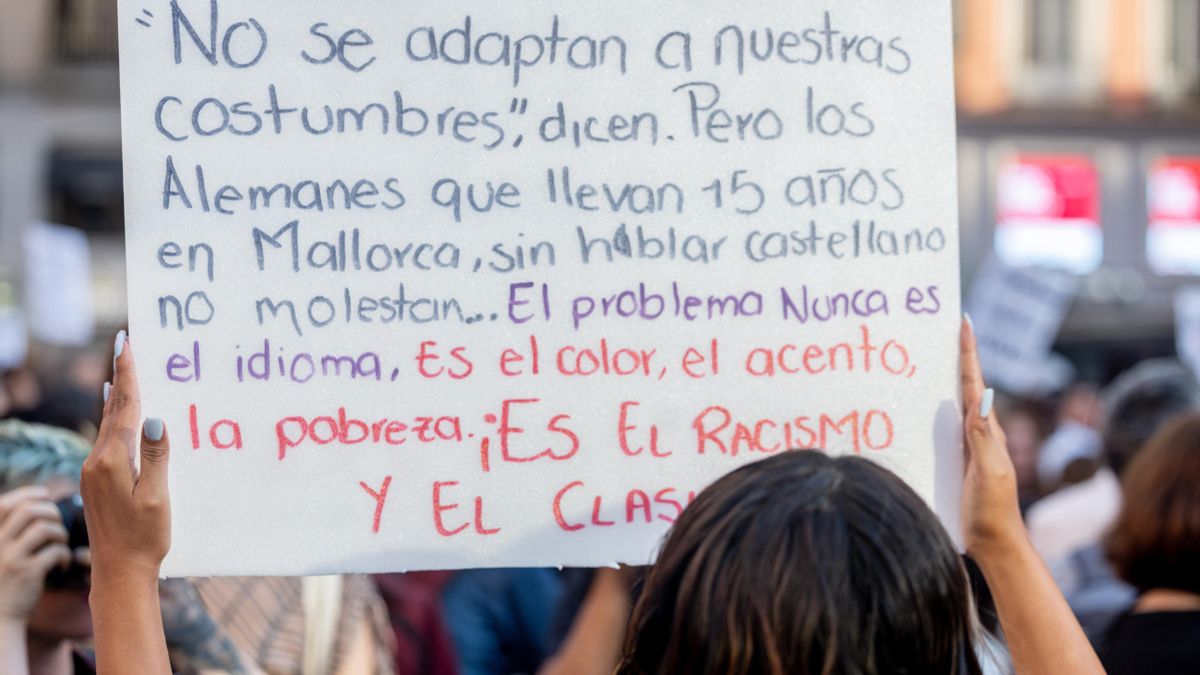 "No se adaptan a nuestras
costumbres", dicen. Pero los
Alemanes que llevan 15 años
en Mallorca, sin hablar castellano
no molestan... El problema Nunca es
el idioma, Es el color, el acento,
la pobreza. ¡Es El Racismo
Y El